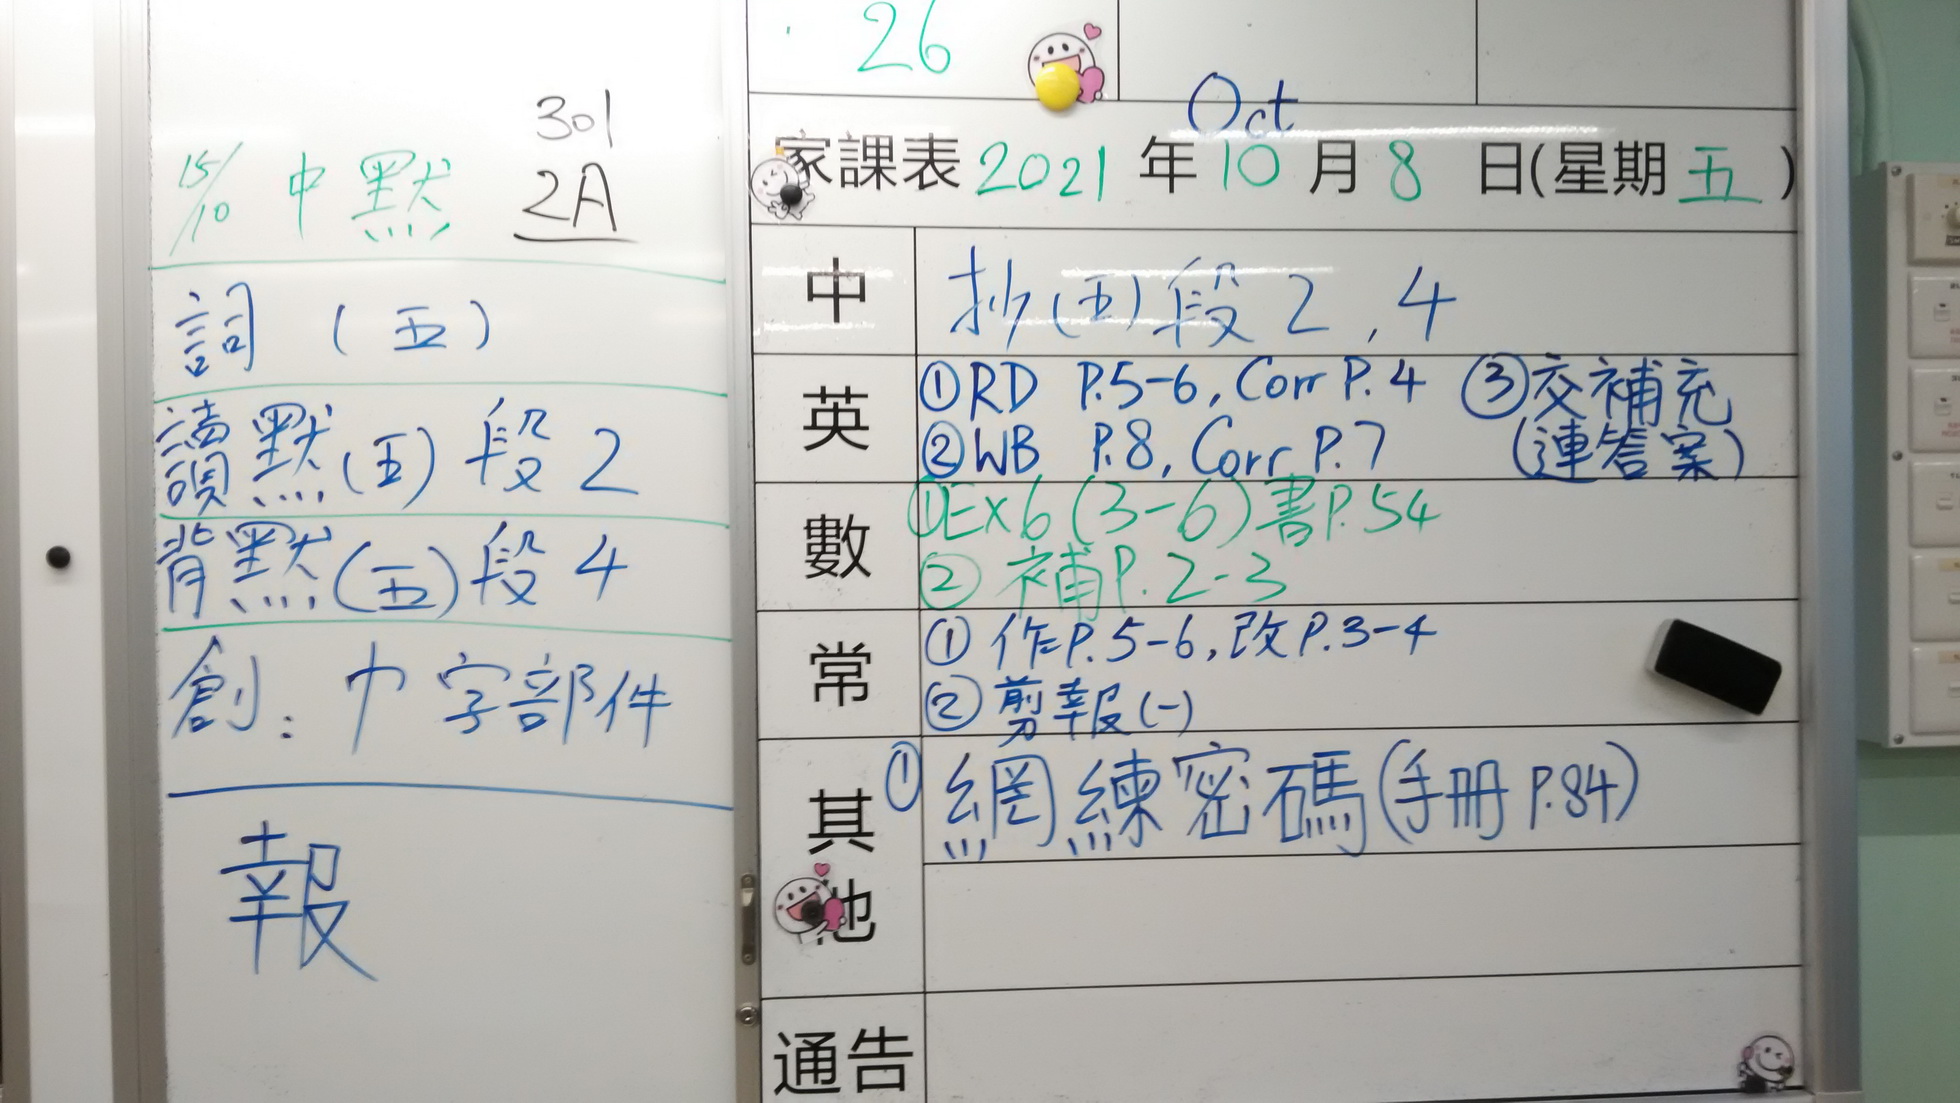 301
2A
15/10 中默
詞 (五)
讀默(五)段2
背默(五)段4
創: 巾字部件
報
26
Oct
家課表 2021 年 10 月 8 日(星期 五 )
中 抄(五)段2,4
英 ①RD P.5-6, Corr P.4 ③交補充
②WB P.8, Corr P.7 (連答案)
數 ①Ex6(3-6)書P.54
②補P.2-3
常 ①作P.5-6,改P.3-4
②剪報(一)
其他 ①網練密碼(手冊P.84)
通告